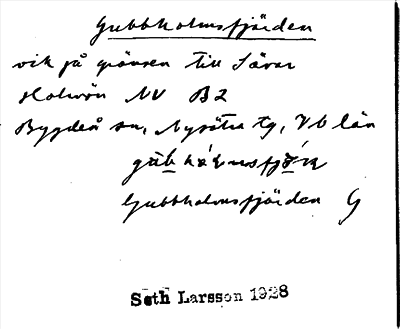 Gubbholmsfjärden
vik på gränsen till Sävar
Holmön NV B2
Bygdeå sn, Nysätra tg, Vb län
Gubbholmsfjärden G
Seth Larsson 1928